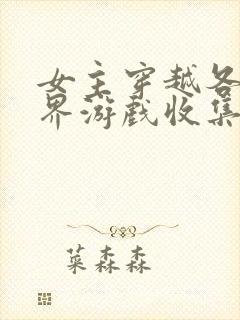 女主穿越各
界游戏收集
菜森森